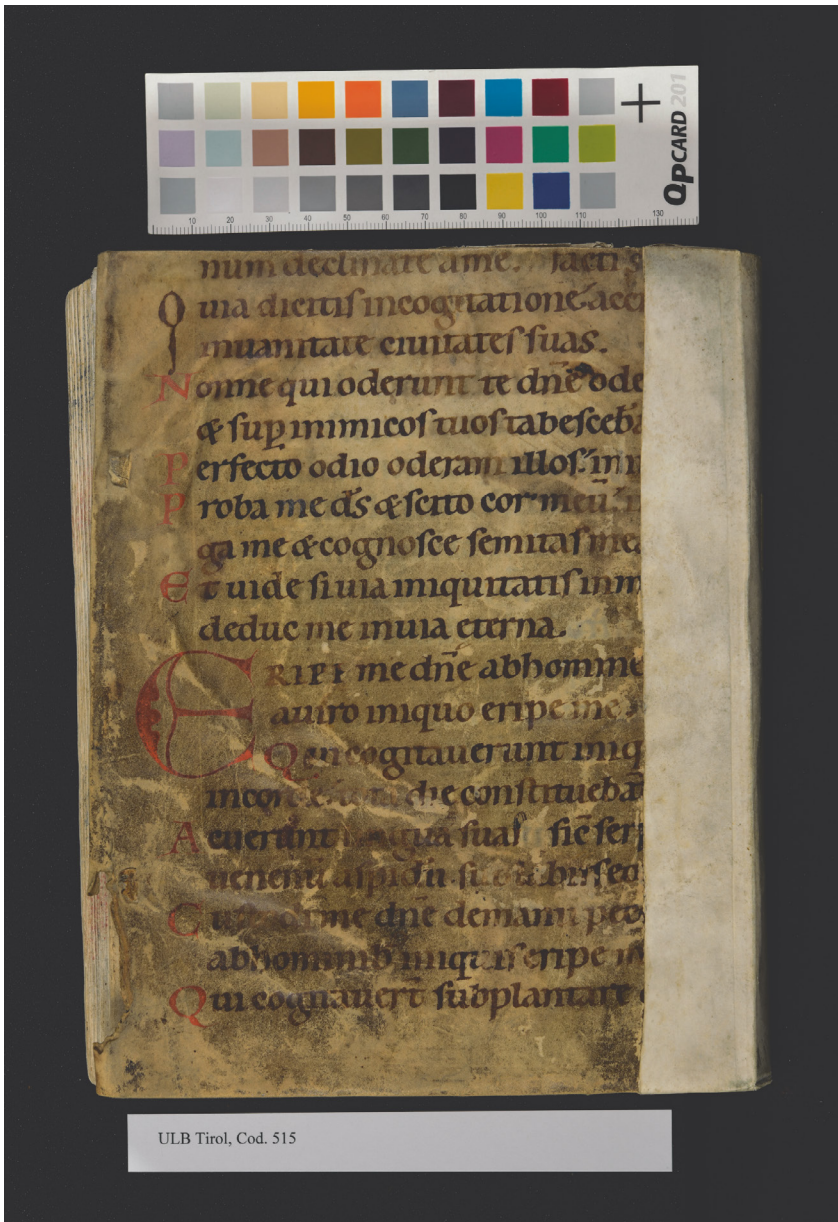 QPCARD 201
10 20 30 40 50 60 70 80 90 100 110 130
num declinate ame. facti s
Quia dicitis incogitatione acci
inuanitate ciuitates suas.
Nonne qui oderunt te dn̄e ode
& sup̱ inimicos tuos tabesceb̄a
Perfecto odio oderam illos. in
Proba me d̄s & scito cor meū.
ga me & cognosce semitas mea
Et uide si uia iniquitatis in m
deduc me inuia eterna.
ERIPE me dn̄e abhomine
auiro iniquo eripe me
Qui cogitauerunt iniq
incorde die constituebā
Acuerunt lingua suas sic̄ serp
uenenū aspidū
Custodi me dn̄e demanu pecc
abhominib iniquis eripe m
Qui cogitauert̄ subplantare
ULB Tirol, Cod. 515